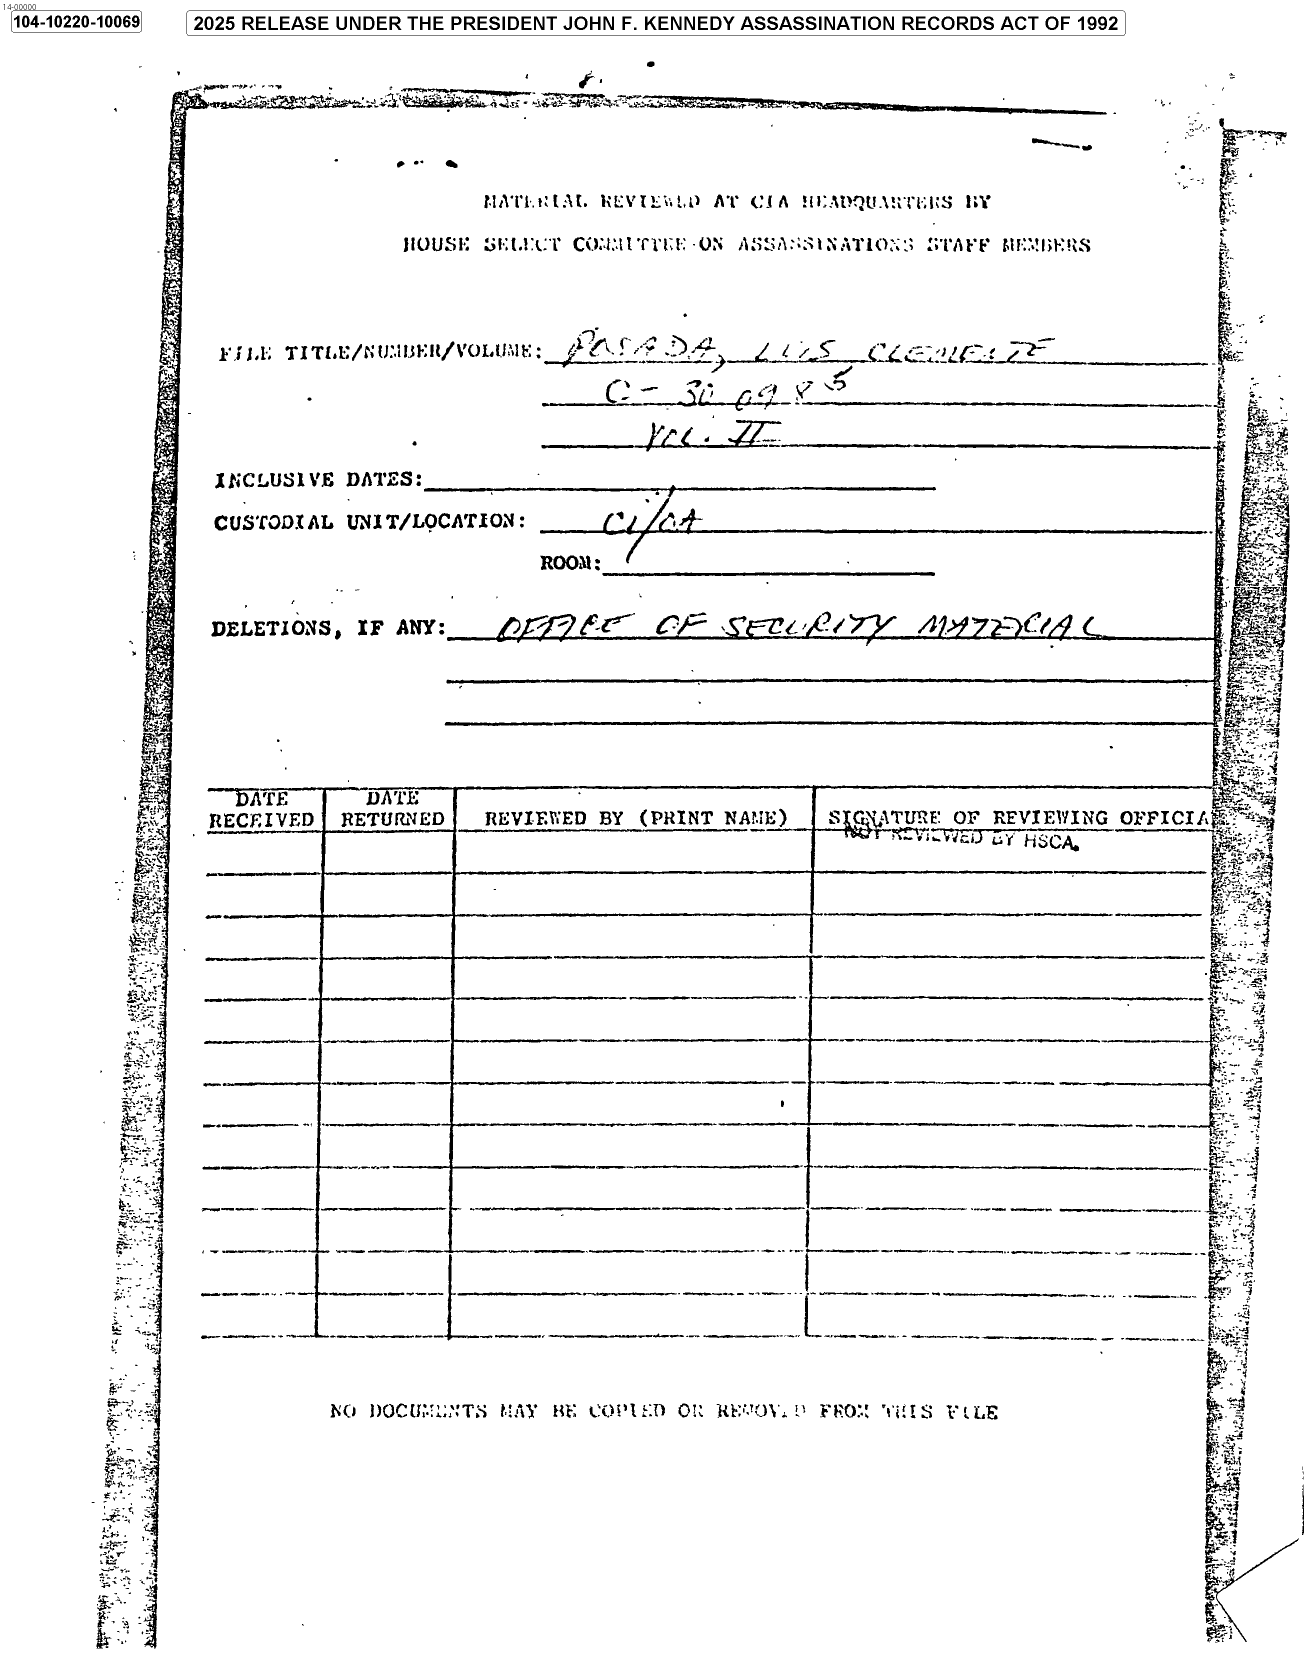 14-00000
104-10220-10069
2025 RELEASE UNDER THE PRESIDENT JOHN F. KENNEDY ASSASSINATION RECORDS ACT OF 1992
MATERIAL REVIEWED AT CIA HEADQUARTERS BY
HOUSE SELECT COMMITTEE ON ASSASSINATIONS STAFF MEMBERS
FILE TITLE/NUMBER/VOLUME: POSADA, LUIS CLEMENTE
C-300985
VOL. II
INCLUSIVE DATES:
CUSTODIAL UNIT/LOCATION: CI/OA
ROOM:
DELETIONS, IF ANY: OFFICE OF SECURITY MATERIAL
DATE RECEIVED
DATE RETURNED
REVIEWED BY (PRINT NAME)
SIGNATURE OF REVIEWING OFFICIA
NOT REVIEWED BY HSCA.
NO DOCUMENTS MAY BE COPIED OR REMOVED FROM THIS FILE